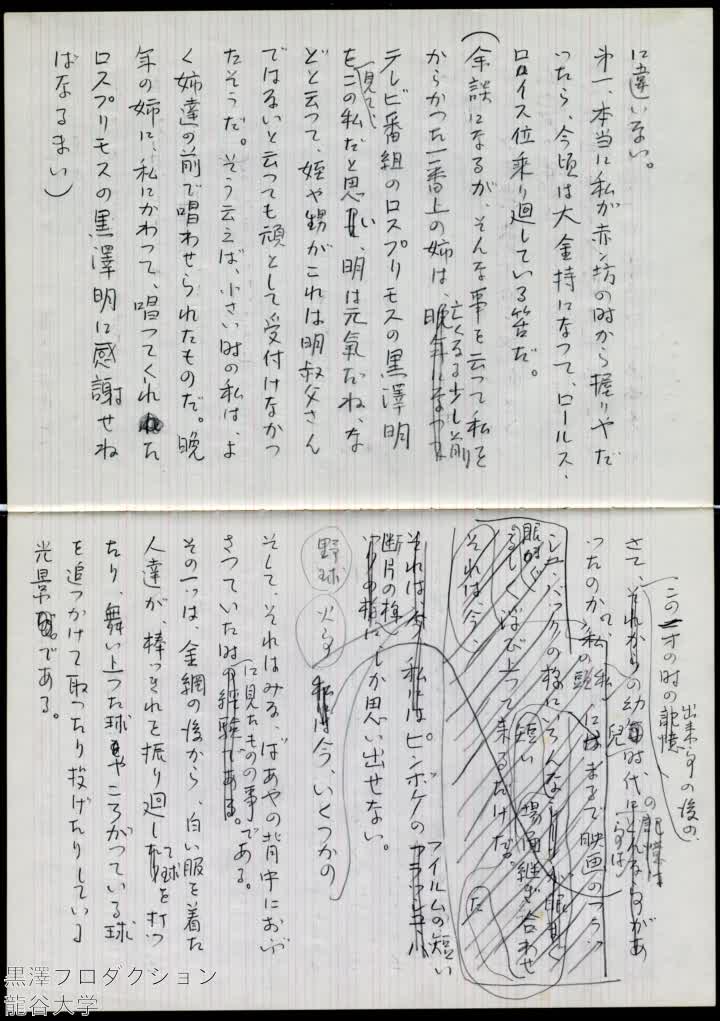 に違いない。
第一、本当に私が赤ン坊の時から握りやだ
ったら、今頃は大金持になつて、ロールス、
ロイス位乗り廻している筈だ。
(余談になるが、そんな事を云つて私を
からかつた一番上の姉は、亡くなる少し前
テレビ番組のロスプリモスの黒澤明
を見てこの私だと思い、明は元氣だね、な
どと云つて、姪や甥がこれは明叔父さん
ではないと云つても頑として受付けなかつ
たそうだ。そう云えば、小さい時の私は、よ
く姉達の前で唱わせられたものだ。晩
年の姉に、私にかわつて、唱つてくれた
ロスプリモスの黒澤明に感謝せね
ばなるまい)
この一才の時の記憶
出来事の後の、
さて、それからの幼児時代
の記憶は
それは今、
それは、私にはピンボケのフイルムの短い
断片の様にしか思い出せない。
野球
火事
私は今、いくつかの
そして、それはみな、ばあやの背中におぶ
さつていた時に見たものの事である。
その一つは、金網の後から、白い服を着た
人達が、棒つきれを振り廻して球を打つ
たり、舞い上つた球やころがつている球
を追つかけて取つたり投げたりしている
光景である。
黒澤プロダクション
龍谷大学